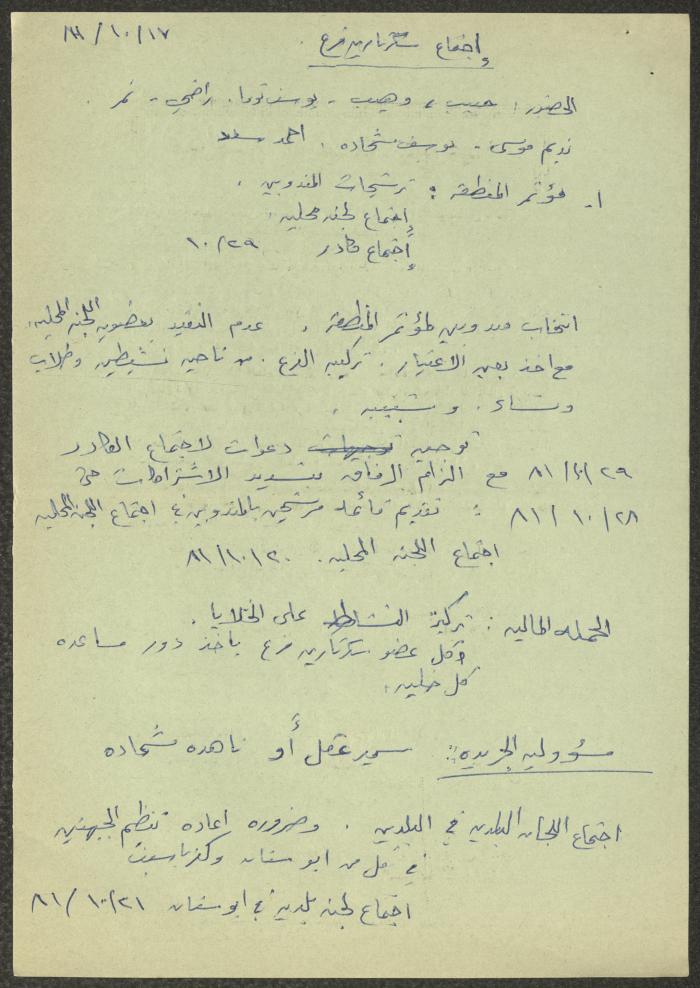 ٨١/١٠/١٧
إجتماع سكرتارية فرع
الحضور: حبيب، وهيب - يوسف توما. راضي - نمر.
نديم موسى - يوسف شحاده. احمد سعد
١- مؤتمر المنطقة: ترشيحات المندوبين.
إجتماع لجنه محليه.
إجتماع كادر ١٠/٢٩
انتخاب مندوبين لمؤتمر المنطقة. عدم التقيد بعضوية اللجنه المحليه.
مع اخذ بعين الاعتبار. تركيبه الفرع. من ناحيه نشيطين وطلاب
ونساء. وشبيبه.
توجيه دعوات لاجتماع الكادر
٨١/١٠/٢٩ مع الزام الرفاق بتسديد الاشتراكات حتى
٨١/١٠/٢٨ : تقديم قائمة مرشحين بالمندوبين في اجتماع اللجنه المحليه
اجتماع اللجنه المحليه. ٨١/١٠/٢٠
الحمله الماليه: تركيز النشاط على الخلايا.
وكل عضو سكرتارية فرع ياخذ دور مساعده
كل خليه.
مسؤوليه الجريده: سمير عقل أو ناهده شحاده
اجتماع اللجان البلديه في البلدين. وضروره اعاده تنظيم الجبهتين
في كل من ابو سنان وكفر ياسيف
اجتماع لجنه بلديه في ابو سنان ٨١/١٠/٢١